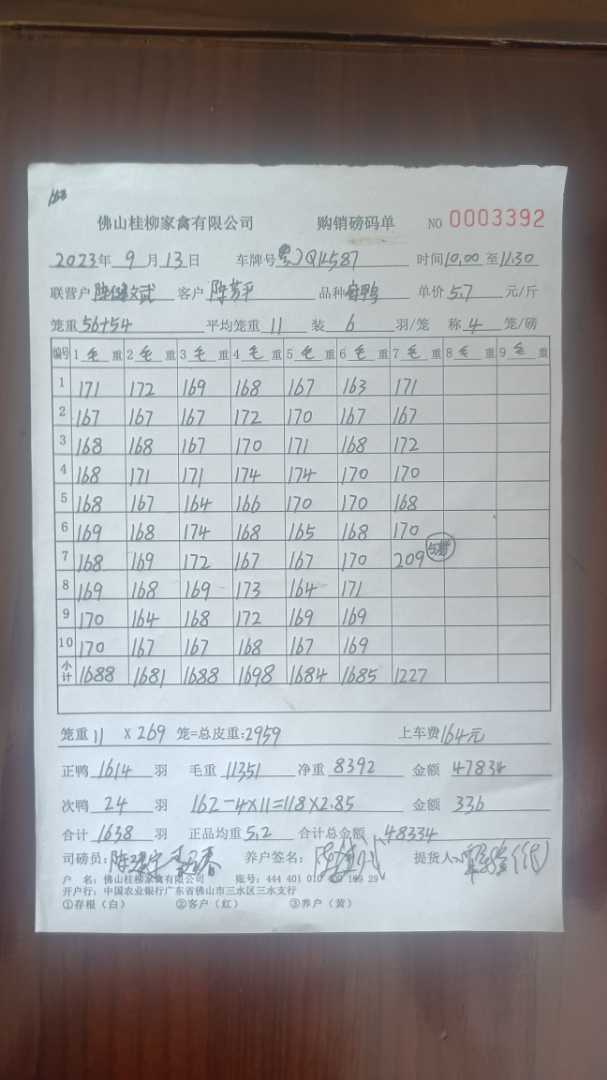 佛山桂柳家禽有限公司 购销磅码单 NO 0003392
2023年 9月13日 车牌号 Q4587 时间10.00至11.30
联营户 客户 陈芳平 品种 单价 5.7 元/斤
笼重56+54 平均笼重 11 装 6 羽/笼 称 4 笼/磅
编号 1毛重 2毛重 3毛重 4毛重 5毛重 6毛重 7毛重 8毛重 9毛重
1 171 172 169 168 167 163 171
2 167 167 167 172 170 167 167
3 168 168 167 170 171 168 172
4 168 171 171 174 174 170 170
5 168 167 164 166 170 170 168
6 169 168 174 168 165 168 170
7 168 169 172 167 167 170 209
8 169 168 169 173 164 171
9 170 164 168 172 169 169
10 170 167 167 168 167 169
小计 1688 1681 1688 1698 1684 1685 1227
笼重 11 X 269 笼=总皮重:2959 上车费164元
正鸭 1614 羽 毛重 11351 净重 8392 金额 47834
次鸭 24 羽 162-4×11=118×2.85 金额 336
合计 1638 羽 正品均重 5.2 合计总金额 48334
司磅员: 养户签名: 提货人:
户 名: 佛山桂柳家禽有限公司 账号: 444 401 010 29
开户行: 中国农业银行广东省佛山市三水区三水支行
①存根（白） ②客户（红） ③养户（黄）